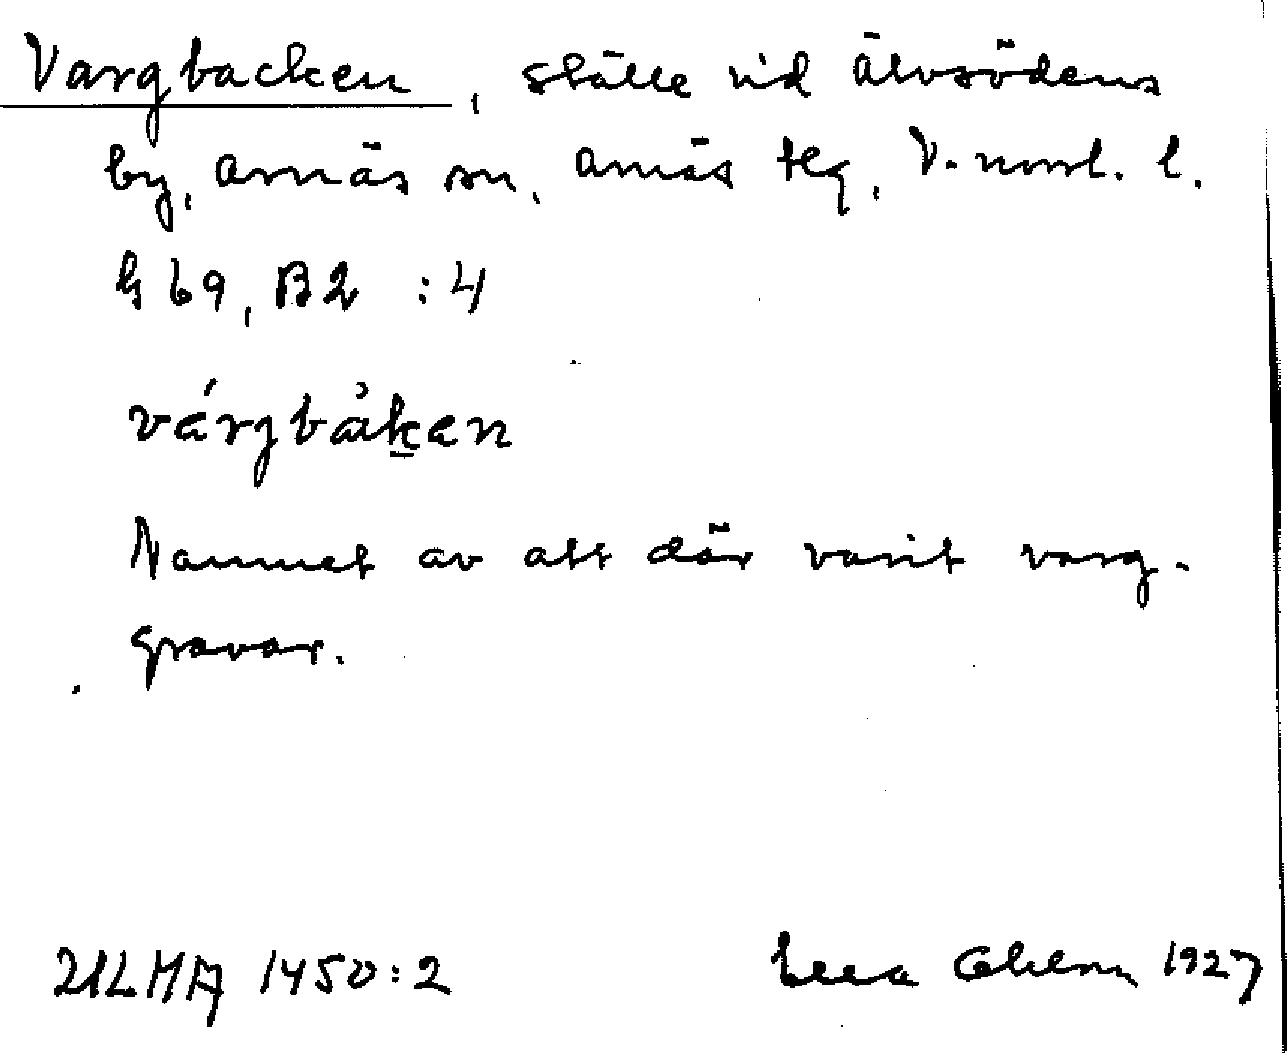 Vargbacken, ställe vid Älvsödens
by, Arnäs sn, Arnäs tlg, V. norrl. l.
G 69, B2 :4
várgbåken
Namnet av att där varit varg-
gravar.
ULMA 1450:2 1927